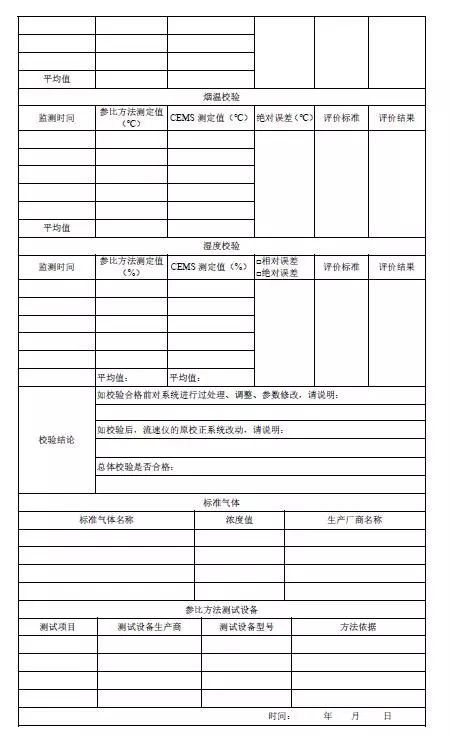 平均值
烟温校验
监测时间 参比方法测定值（℃） CEMS 测定值（℃） 绝对误差（℃） 评价标准 评价结果
平均值
湿度校验
监测时间 参比方法测定值（%） CEMS 测定值（%） □相对误差 □绝对误差 评价标准 评价结果
平均值： 平均值：
校验结论
如校验合格前对系统进行过处理、调整、参数修改，请说明：
如校验后，流速仪的原校正系统改动，请说明：
总体校验是否合格：
标准气体
标准气体名称 浓度值 生产厂商名称
参比方法测试设备
测试项目 测试设备生产商 测试设备型号 方法依据
时间： 年 月 日